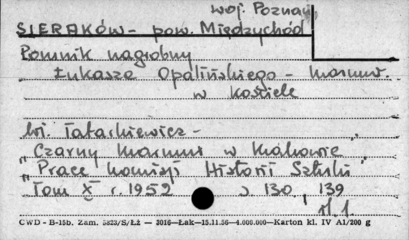 woj. Poznań
SIERAKÓW - pow. Międzychód
Pomnik nagrobny
Łukasza Opalińskiego - marmur.
w kościele
Wł. Tatarkiewicz -
"Czarny marmur w Krakowie"
"Prace Komisji Historii Sztuki"
Tom X r. 1952 s 130, 139
il. 1.
CWD - B-15b. Zam. 5823/S/Łż — 2016—Łak—15.11.56—4.000.000—Karton kl. IV A1/200 g